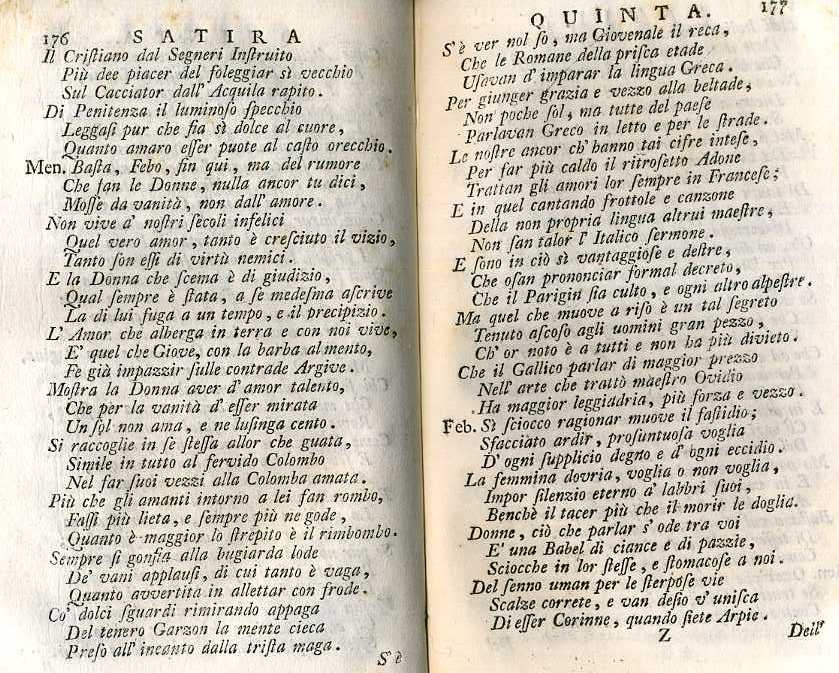 176 SATIRA
Il Criſtiano dal Segneri Inſtruito
Più dee piacer del foleggiar sì vecchio
Sul Cacciator dall' Acquila rapito.
Di Penitenza il luminoſo ſpecchio
Leggaſi pur che ſia sì dolce al cuore,
Quanto amaro eſſer puote al caſto orecchio.
Men. Baſta, Febo, fin qui, ma del rumore
Che fan le Donne, nulla ancor tu dici,
Moſſe da vanità, non dall' amore.
Non vive a' noſtri ſecoli infelici
Quel vero amor, tanto è creſciuto il vizio,
Tanto ſon eſſi di virtù nemici.
E la Donna che ſcema è di giudizio,
Qual ſempre è ſtata, a ſe medeſma aſcrive
La di lui fuga a un tempo, e il precipizio.
L' Amor che alberga in terra e con noi vive,
E' quel che Giove, con la barba al mento,
Fe già impazzir ſulle contrade Argive.
Moſtra la Donna aver d' amor talento,
Che per la vanità d' eſſer mirata
Un ſol non ama, e ne luſinga cento.
Si raccoglie in ſe ſteſſa allor che guata,
Simile in tutto al fervido Colombo
Nel far ſuoi vezzi alla Colomba amata.
Più che gli amanti intorno a lei fan rombo,
Faſſi più lieta, e ſempre più ne gode,
Quanto è maggior lo ſtrepito è il rimbombo.
Sempre ſi gonfia alla bugiarda lode
De' vani applauſi, di cui tanto è vaga,
Quanto avvertita in allettar con frode.
Co' dolci ſguardi rimirando appaga
Del tenero Garzon la mente cieca
Preſo all' incanto dalla triſta maga.
S'è
QUINTA. 177
S'è ver nol ſo, ma Giovenale il reca,
Che le Romane della priſca etade
Uſavan d' imparar la lingua Greca.
Per giunger grazia e vezzo alla beltade,
Non poche ſol, ma tutte del paeſe
Parlavan Greco in letto e per le ſtrade.
Le noſtre ancor ch' hanno tai cifre inteſe,
Per far più caldo il ritroſetto Adone
Trattan gli amori lor ſempre in Franceſe;
E in quel cantando frottole e canzone
Della non propria lingua altrui maeſtre,
Non ſan talor l' Italico ſermone.
E ſono in ciò sì vantaggioſe e deſtre,
Che oſan prononciar formal decreto,
Che il Parigin ſia culto, e ogni altro alpeſtre.
Ma quel che muove a riſo è un tal ſegreto
Tenuto aſcoſo agli uomini gran pezzo,
Ch' or noto è a tutti e non ha più divieto.
Che il Gallico parlar di maggior prezzo
Nell' arte che trattò maeſtro Ovidio
Ha maggior leggiadria, più forza e vezzo.
Feb. Sì ſciocco ragionar muove il faſtidio;
Sfacciato ardir, proſuntuoſa voglia
D' ogni ſupplicio degno e d' ogni eccidio.
La femmina dovria, voglia o non voglia,
Impor ſilenzio eterno a' labbri ſuoi,
Benchè il tacer più che il morir le doglia.
Donne, ciò che parlar s' ode tra voi
E' una Babel di ciance e di pazzie,
Sciocche in lor ſteſſe, e ſtomacoſe a noi.
Del ſenno uman per le ſterpoſe vie
Scalze correte, e van deſio v' uniſca
Di eſſer Corinne, quando ſiete Arpie.
Z Dell'